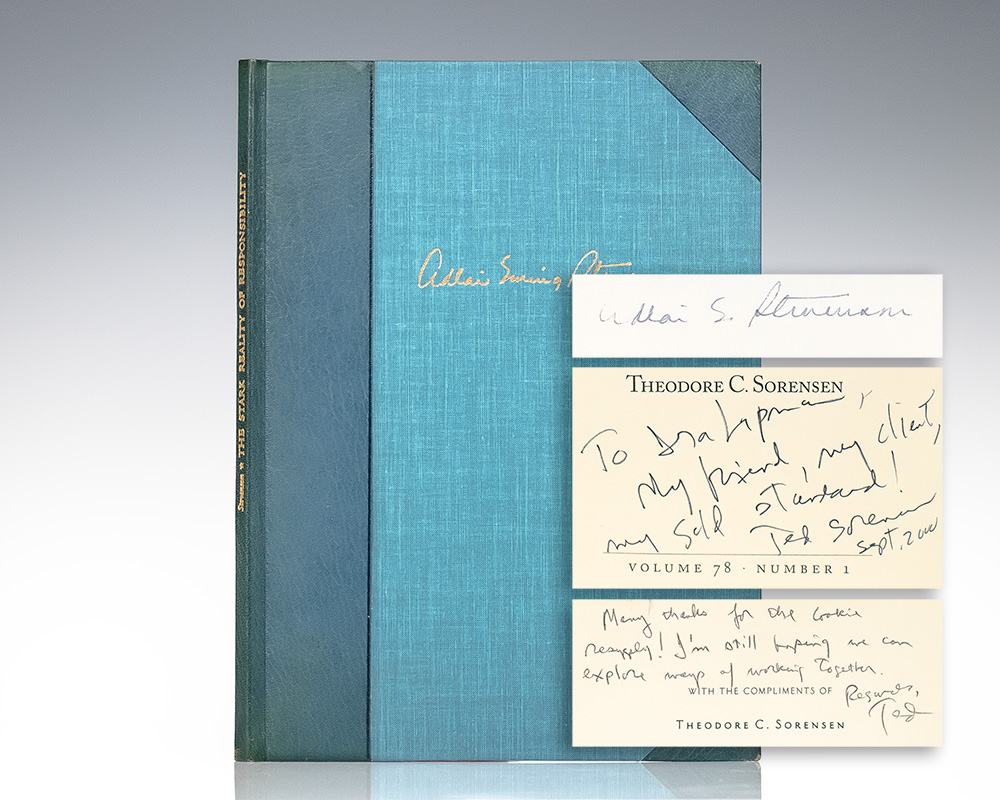 Sorensen * THE STARK REALITY OF RESPONSIBILITY
Adlai Ewing
Adlai S. Stevenson
THEODORE C. SORENSEN
To
My friend, my client,
my gold standard!
Ted Sorensen
Sept, 2000
VOLUME 78 · NUMBER 1
Many thanks for the cookie
I'm still hoping we can
explore ways of working together.
WITH THE COMPLIMENTS OF
Regards,
Ted
THEODORE C. SORENSEN